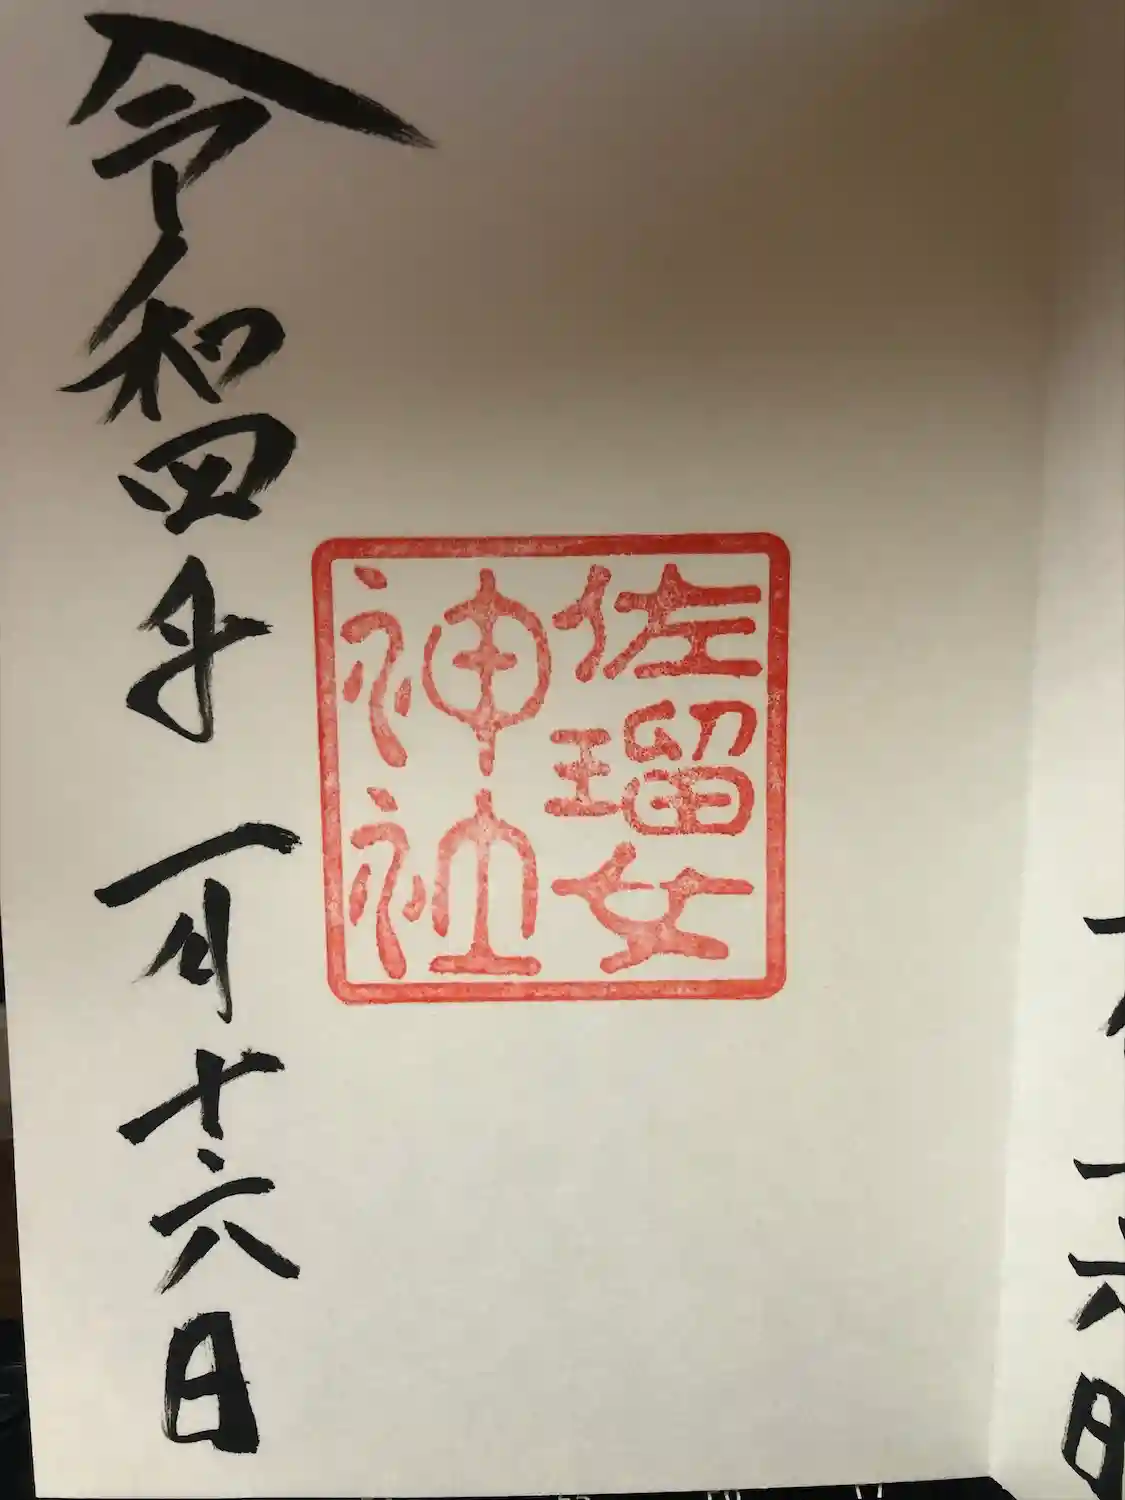 佐瑠女
神社
令和四年一月十六日